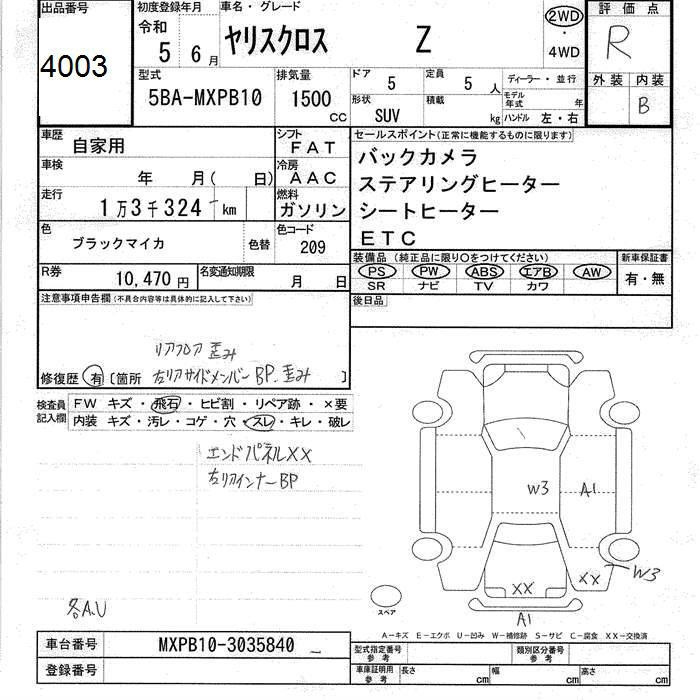 出品番号
4003
初度登録年月
令和
5 6月
車名・グレード
ヤリスクロス Z
2WD
・
4WD
評価点
R
外装 内装
B
型式
5BA-MXPB10
排気量
1500
CC
ドア
5
定員
5 人
ディーラー・並行
形状
SUV
積載
kg
モデル年式
年
ハンドル 左・右
車歴
自家用
シフト
FAT
車検
年 月( 日)
冷房
AAC
走行
1万3千324 km
燃料
ガソリン
色
ブラックマイカ
色替
色コード
209
R券
10,470 円
名変通知期限
月 日
セールスポイント(正常に機能するものに限ります)
バックカメラ
ステアリングヒーター
シートヒーター
ETC
装備品 (純正品に限り○をつけてください)
PS PW ABS エアB AW
SR ナビ TV カワ
新車保証書
有・無
後日品
注意事項申告欄(不具合内容等は具体的に記入して下さい)
リアフロア 歪み
修復歴 有 〔箇所 左リアサイドメンバー BP.歪み 〕
検査員記入欄
FW キズ・飛石・ヒビ割・リペア跡・×要
内装 キズ・汚レ・コゲ・穴・スレ・キレ・破レ
エンドパネルXX
左リアインナーBP
各A.U
W3
A1
XX
XX
W3
A1
スペア
A-キズ E-エクボ U-凹み W-補修跡 S-サビ C-腐食 XX-交換済
車台番号
MXPB10-3035840
登録番号
型式指定番号
参考
類別区分番号
参考
車庫証明用
参考
長さ cm
幅 cm
高さ cm